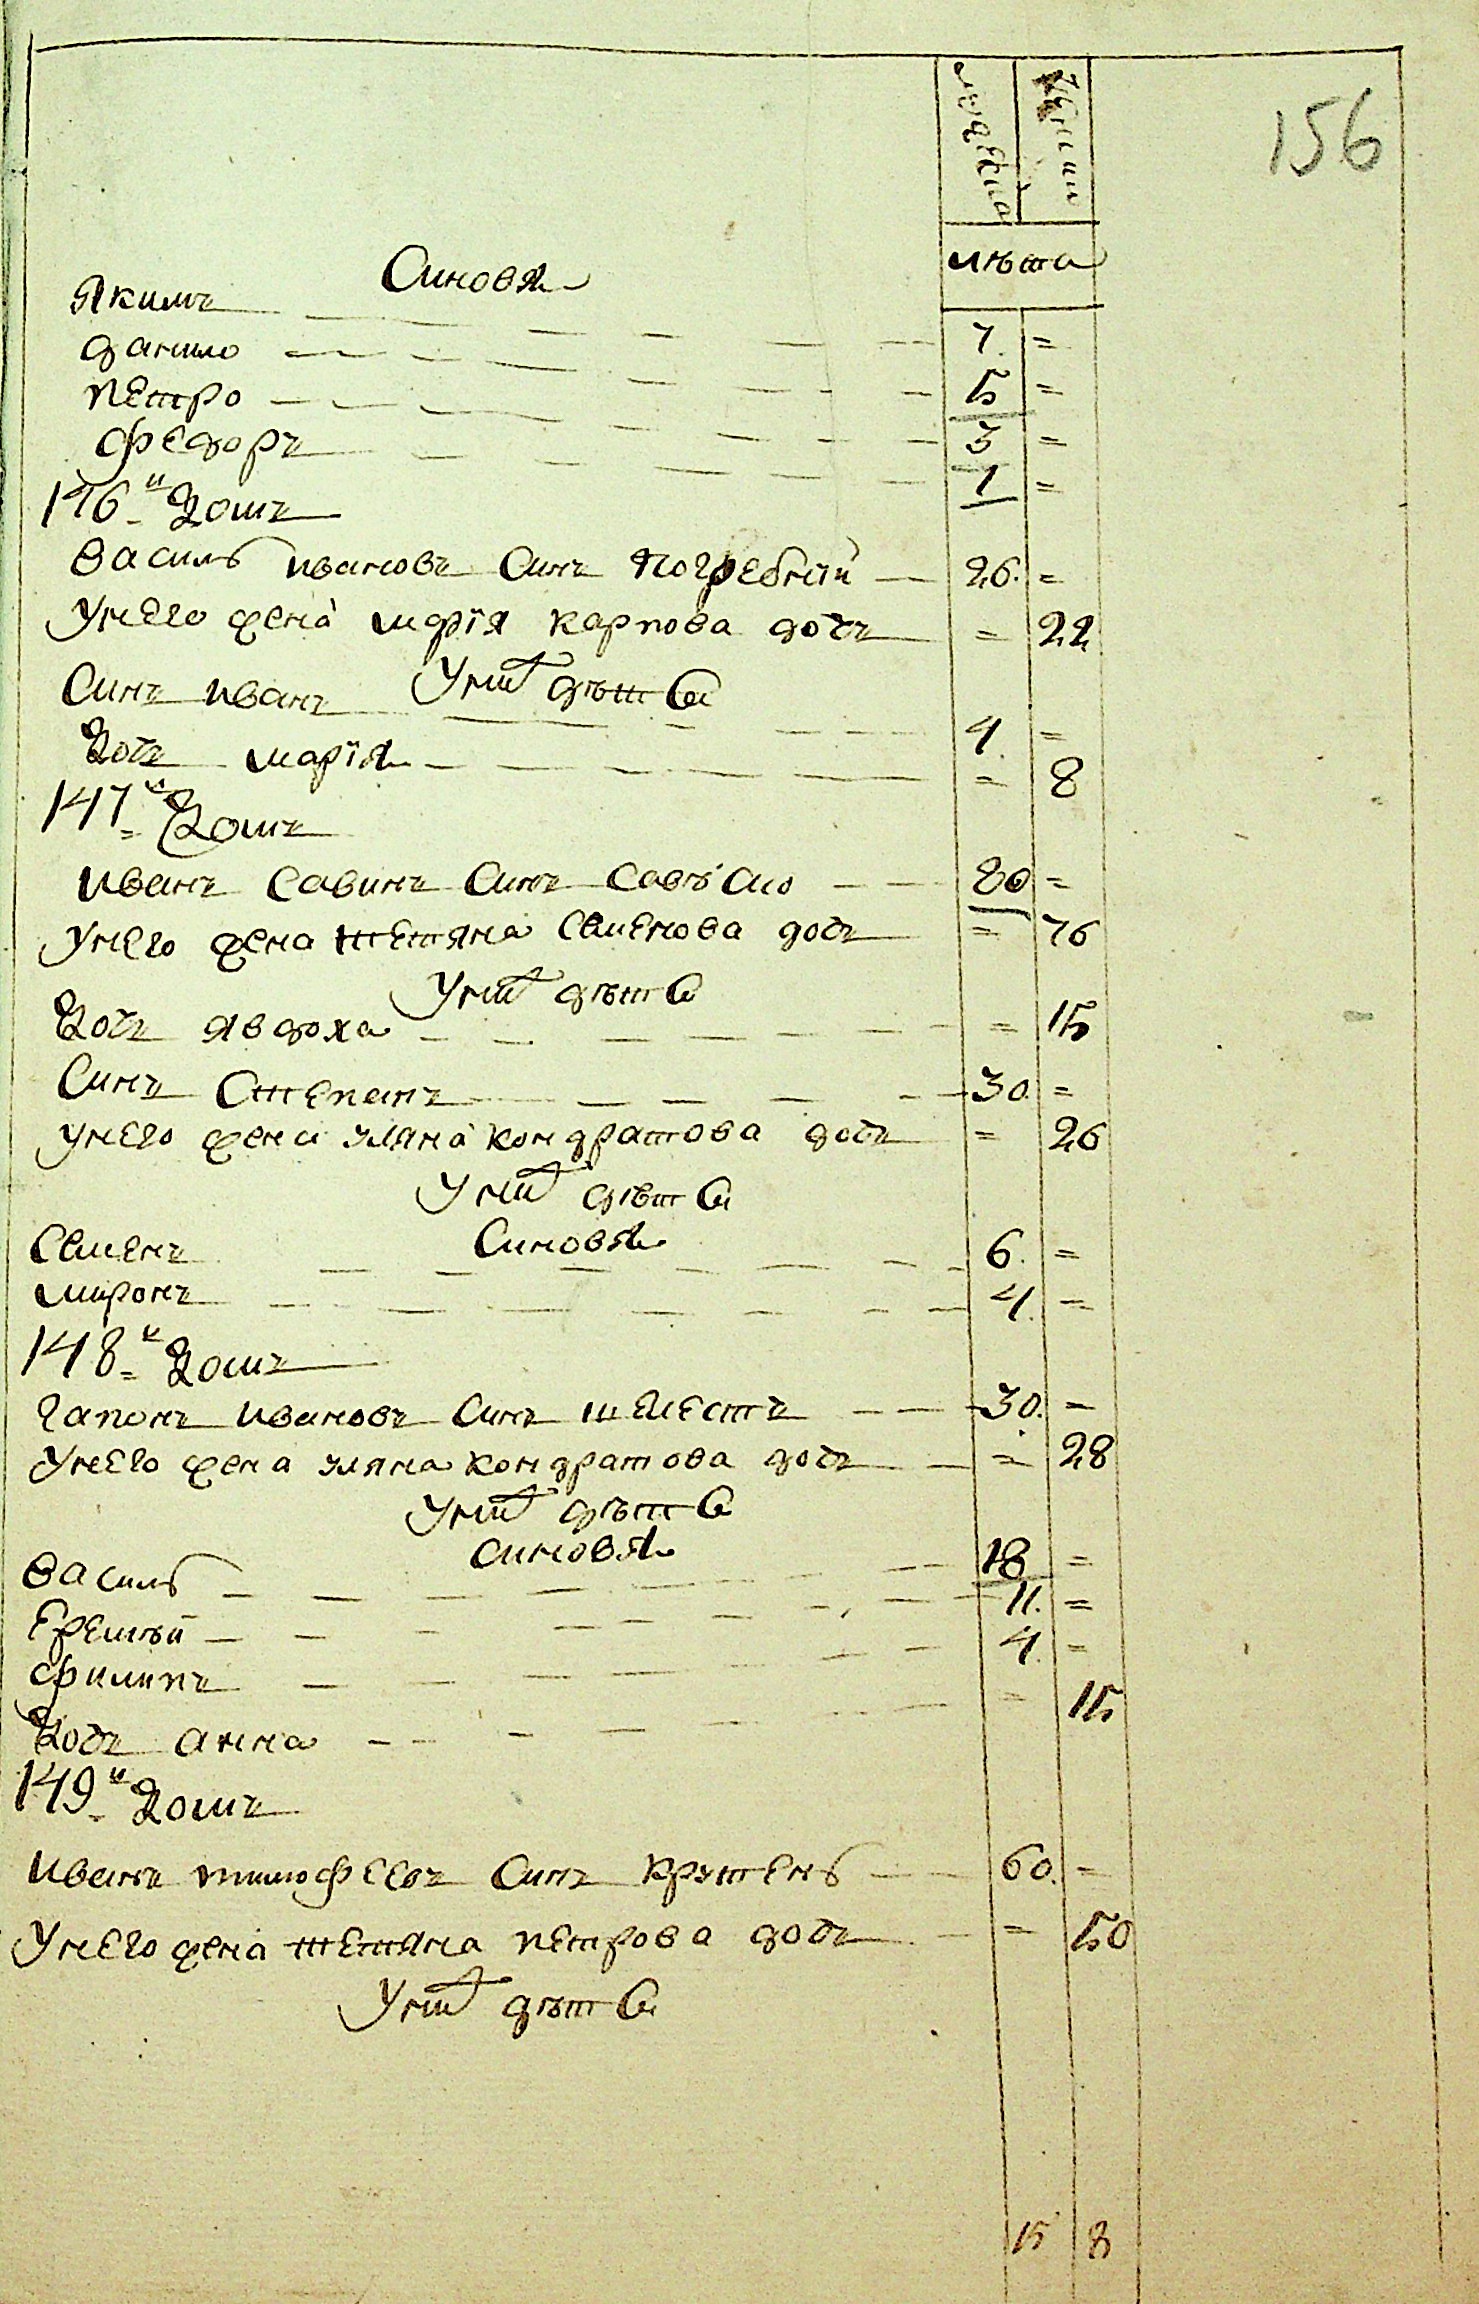 156
мужеска
женски
лѣта
Синовя
Якимъ 7. =
данило 5 =
петро 3 =
федоръ 1 =
146й Домъ
Василь ивановъ Синъ Погребний 26. =
унего жена марїя карпова дочъ = 22
Унихъ дѣти
Синъ иванъ 4. =
Дочъ марїя = 8
147й Домъ
иванъ Савинъ Синъ 80 =
унего жена тетяна Семенова дочъ = 76
Унихъ дѣти
Дочъ явдоха = 15
Синъ Степанъ 30. =
унего жена уляна кондратова дочъ = 26
Унихъ дѣти
Синовя
Семенъ 6. =
миронъ 4. =
148й Домъ
гапонъ ивановъ Синъ шелестъ 30. =
унего жена уляна кондратова дочъ = 28
Унихъ дѣти
синовя
Василь 18 =
Еремѣй 11. =
филипъ 4. =
Дочъ анна = 15
149й Домъ
иванъ тимофеевъ Синъ крутень 60. =
Унего жена тетяна петрова дочъ = 50
Унихъ дѣти
15 8